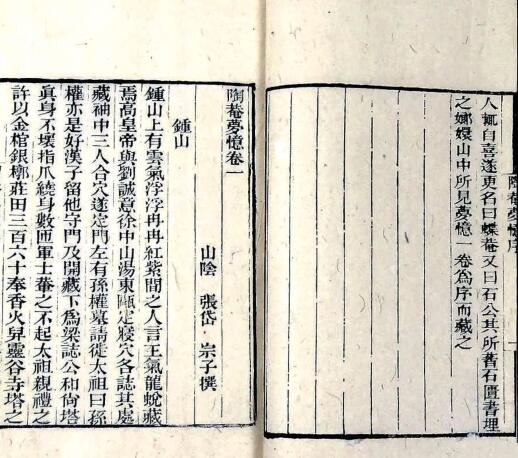 陶菴夢憶序
一
人輒自喜遂更名曰蝶菴又曰石公其所舊石匱書埋
之嫏嬛山中所見夢憶一卷爲序而藏之
陶菴夢憶卷一
山陰 張岱 宗子撰
鍾山
鍾山上有雲氣浮浮冉冉紅紫間之人言王氣龍蛻藏
焉高皇帝與劉誠意徐中山湯東甌定寢穴各誌其處
藏袖中三人合穴遂定門左有孫權墓請徙太祖曰孫
權亦是好漢子留他守門及開藏下爲梁誌公和尚塔
眞身不壞指爪繞身數匝軍士輦之不起太祖親禮之
許以金棺銀槨莊田三百六十奉香火舁靈谷寺塔之